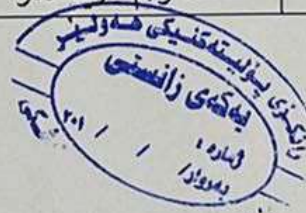 زانکۆی پۆلیتەکنیکی هەولێر
یەکەی زانستی
ژمارە :
بەروار/ / / ٢٠١